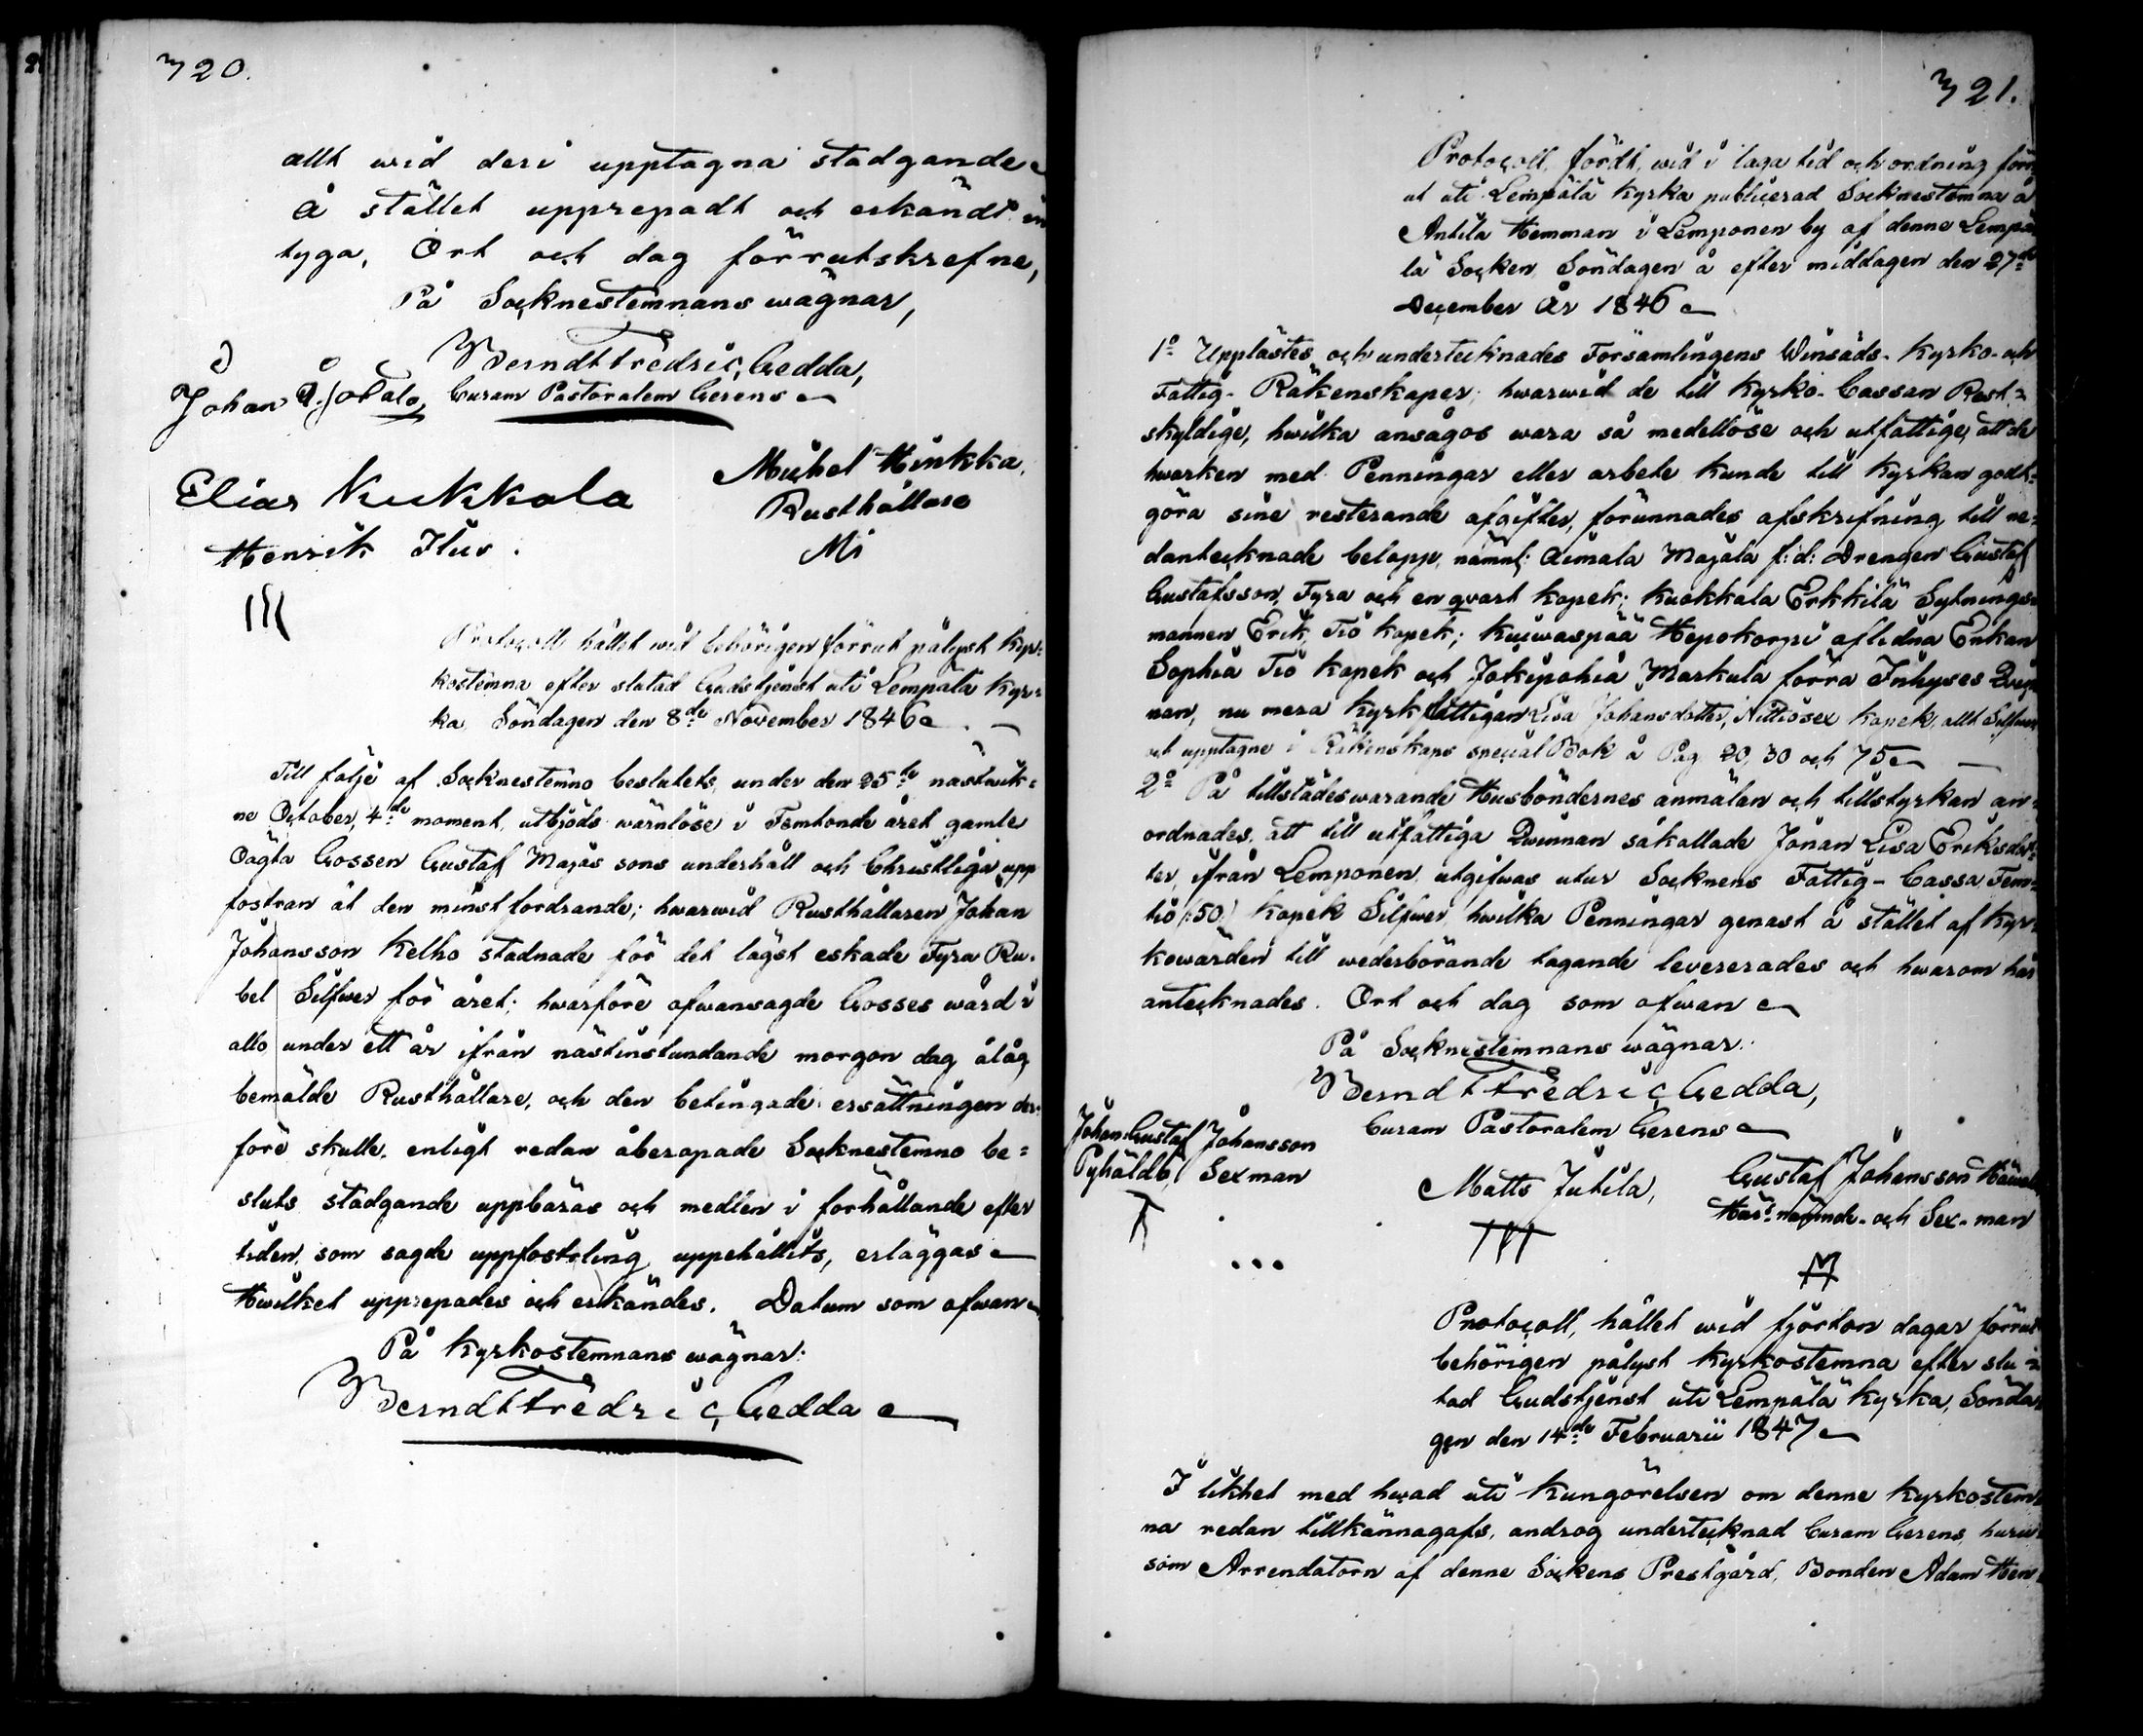 320.
allt wid deri upptagna stadgande
å stället upprepadt och erkändt in
tyga, Ort och dag förrutskrefne,
På Socknestemnans wägnar,
Berndt Fredric Gedda,
Curam Pastoralem Gerens
Johan
Elias Kukkola
Michel Hinkka,
Rusthållare
Henrik Ilus.
Protocoll hållet wid behörigen förrut pålyst Kyr=
kostemna efter slutad Gudstjenst uti Lempäla Kyr=
ka Söndagen den 8de November 1846
Till följe af Socknestemno beslutets under den 25te nästwik=
ne October, 4de moment, utbjöds wärnlöse i Femtonde året gamle
Oägta Gossen Gustaf Majas sons underhåll och Christliga upp
fostran åt den minst fordrande; hwarwid Rusthållaren Johan
Johansson Kelho stadnade för det lägst eskade Fyra Ru=
bel Silfwer för året; hwarföre ofwansagde Gosses wård i
allo under ett år ifrån nästinstundande morgon dag ålåg
bemälde Rusthållare, och den betingade ersättningen der=
före skulle, enligt redan åberopade Socknestemno be=
sluts stadgande uppbäras och medlen i förhållande efter
tiden, som sagde uppfostling uppehållits, erläggas
Hwilket upprepades och erkändes. Datum som ofwan
På Kyrkostemnans wägnar:
Berndt Fredric Gedda
321.
Protocoll, fördt, wid i laga tid och ordning förr
ut uti Lempälä Kyrka publicerad Socknestemna å
Antila Hemman i Lemponen by af denne Lempä
lä Socken, Söndagen å efter middagen den 27de
December År 1846
1o Upplästes och undertecknades Församlingens Winsäds- Kyrko- och
Fattig- Räkenskaper; hwarwid de till Kyrko- Cassan Rest=
skyldige, hwilka ansågos wara så medellöse och utfattige, att de
hwarken med Penningar eller arbete kunde till Kyrkan godt=
göra sine resterande afgifter, förunnades afskrifning till ne=
dantecknade belopp, nämnl: Aimala Majala f:d: Drengen Gustaf
Gustafsson, Fyra och en qvart kopek; Kuokkala Erkkilä Sytnings=
mannen Erik, Tio kopek; Kuiwaspää Hepokorpi aflidna Enkan
Sophia Tio kopek och Jokipohia Markula förra Inhyses Qvin
nan, nu mera Kyrkfattigan Lisa Johansdotter, Nittiosex kopek, allt Silfwer
och upptagne i Räkenskaps special Bok å Pag. 20, 30 och 75
2o På tillstädeswarande Husböndernes anmälan och tillstyrkan an=
ordnades, att till utfattiga Qwinnan såkallade Jonan Lisa Eriksdot=
ter, ifrån Lemponen, utgifwas utur Socknens Fattig- Cassa Fem=
tio (:50:) kopek Silfwer, hwilka Penningar genast å stället af Kyr=
kowärden till wederbörande tagande levererades och hwarom här
antecknades. Ort och dag som ofwan
På Socknestemnans wägnar:
Berndt Fredric Gedda,
Curam Pastoralem Gerens
Johan Gustaf Johansson
Pyhäldö, Sexman
Matts Jutila,
Gustaf Johansson
och Sex-man
Protocoll, hållet wid fjorton dagar förrut
behörigen pålyst Kyrkostemna efter slu=
tad Gudstjenst uti Lempälä Kyrka, Sönda=
gen den 14de Februarii 1847
I likhet med hwad uti Kungörelsen om denne Kyrkostem
na redan tillkännagafs, androg undertecknad Curam Gerens, huru
som Arrendatorn af denne Sockens Prestgård, Bonden Adam Hen